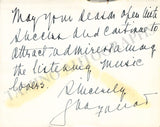 May your season open with
success and continue to
attract admirers among
the listening music
lovers.
Sincerely